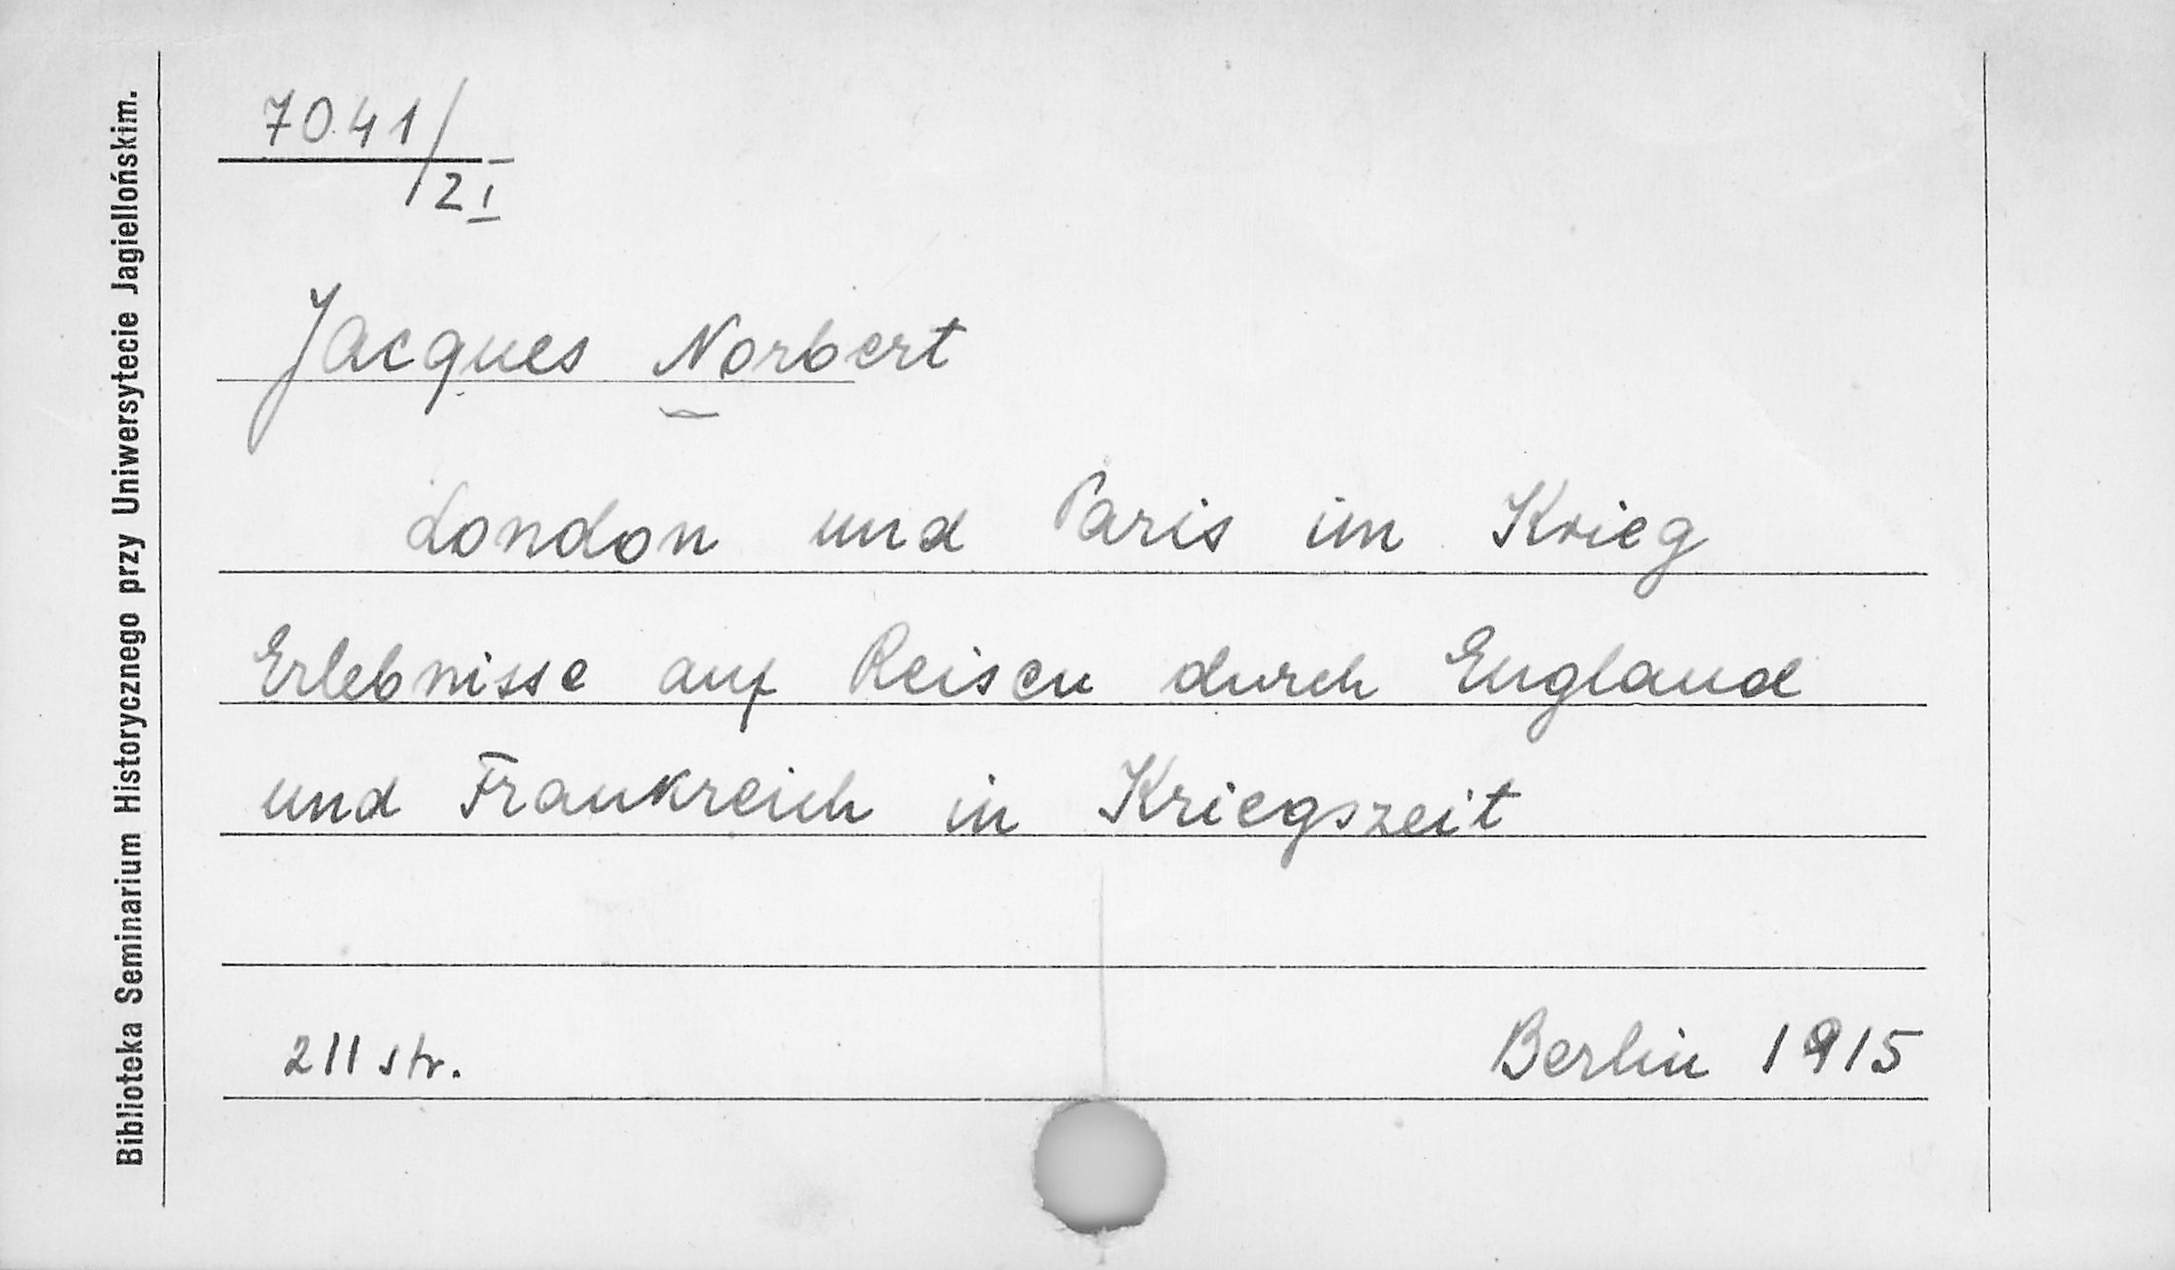 7041/
2I
Jacques Norbert
London und Paris im Krieg
Erlebnisse auf Reisen durch England
und Frankreich in Kriegszeit
211 str.
Berlin 1915
Biblioteka Seminarium Historycznego przy Uniwersytecie Jagiellońskim.